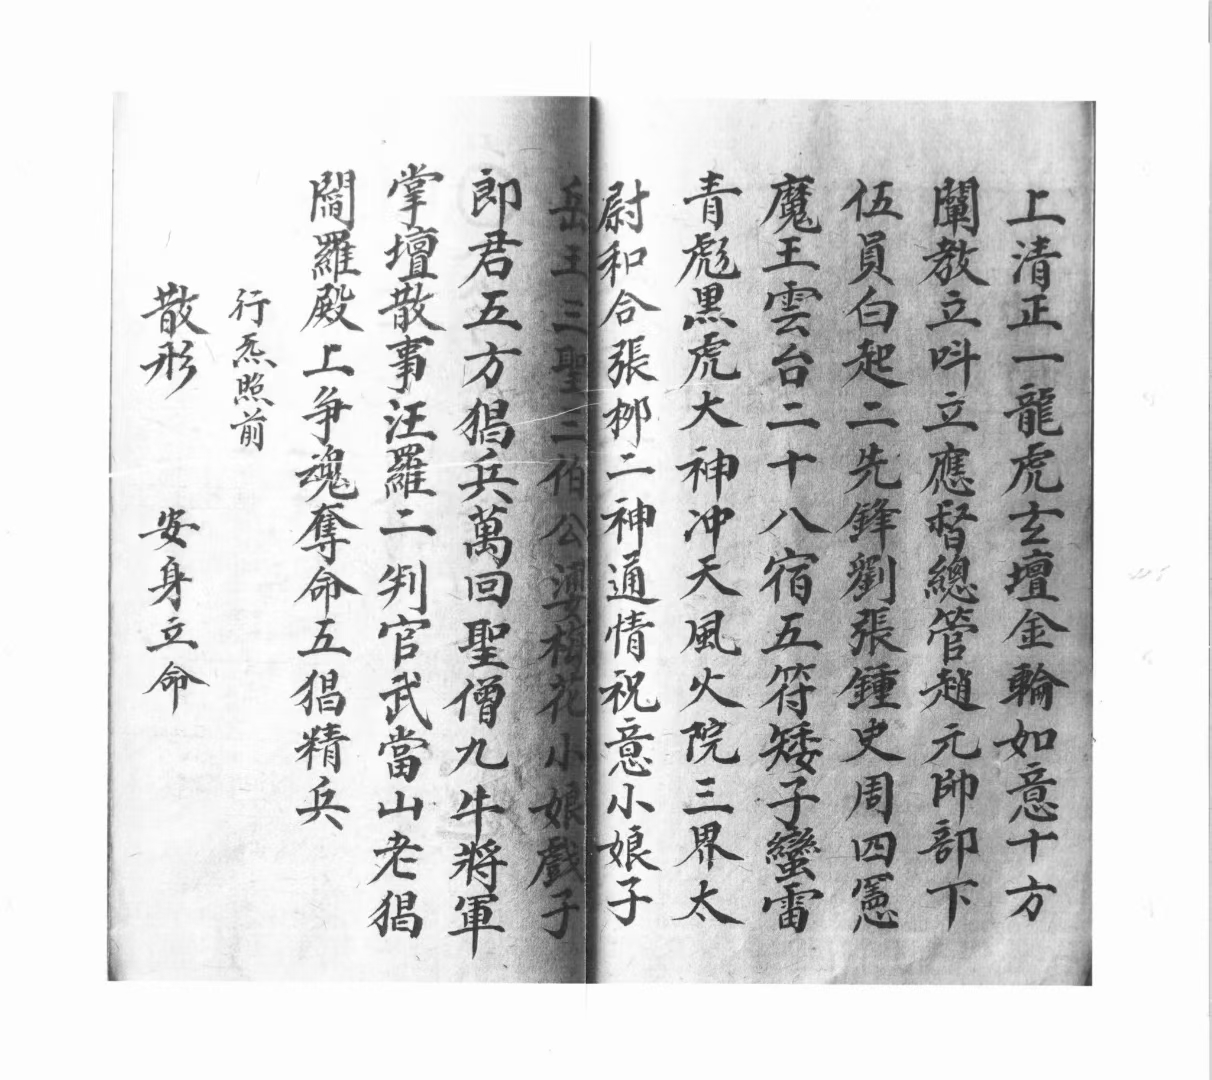 上清正一龍虎玄壇金輪如意十方
闡教立呌立應督總管趙元帥部下
伍員白起二先鋒劉張鍾史周四憲
魔王雲台二十八宿五符矮子蠻雷
青彪黑虎大神冲天風火院三界太
尉和合張柳二神通情祝意小娘子
岳王三聖二伯公梅花小娘戲子
郎君五方猖兵萬回聖僧九牛將軍
掌壇散事汪羅二判官武當山老猖
閻羅殿上争魂奪命五猖精兵
行炁照前
散形 安身立命